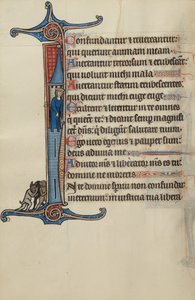 Confundantur et revereantur
qui querunt animam meam
Avertantur retrorsum et erubescant
qui volunt michi mala
Avertantur erubescentes
qui dicunt michi euge euge
Exultent et letentur in te omnes
qui querunt te et dicant semper magnifi
dns qui diligunt salutare tuum
Ego vero egenus et pauper sum
deus adiuva me
Adiutor ms et liberator ms es tu
domine ne moreris
In te domine speravi non confundar
in eternum in iusticia tua libera